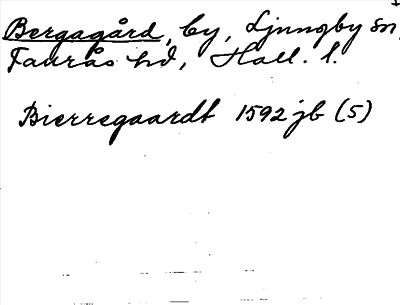 Bergagård, by, Ljungby sn,
Faurås hd, Hall. l.
Bierregaardt 1592 jb (5)